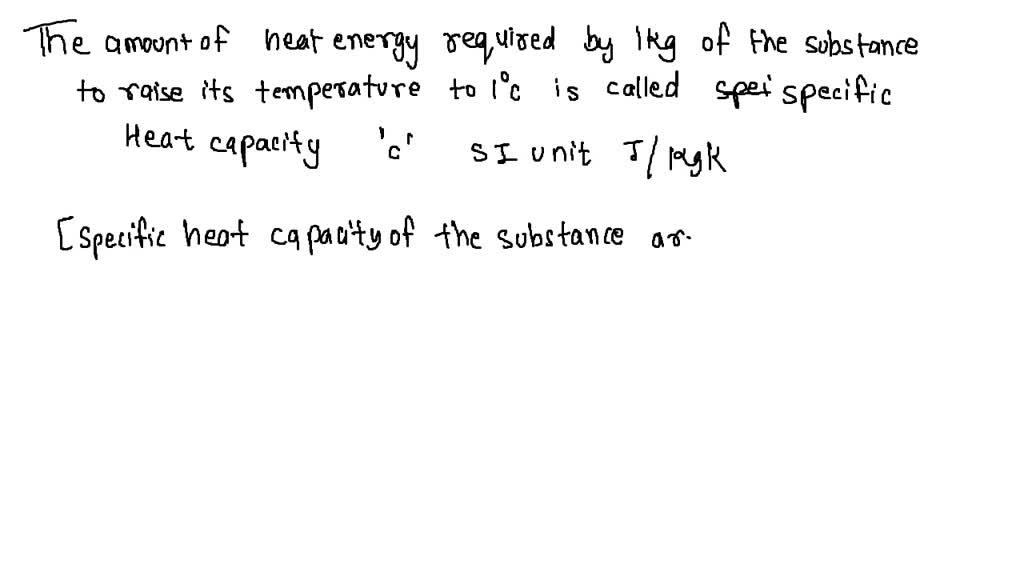 The amount of heat energy required by 1kg of the substance
to raise its temperature to 1°c is called spei specific
Heat capacity 'c' SI unit J/kgK
[specific heat capacity of the substance ar